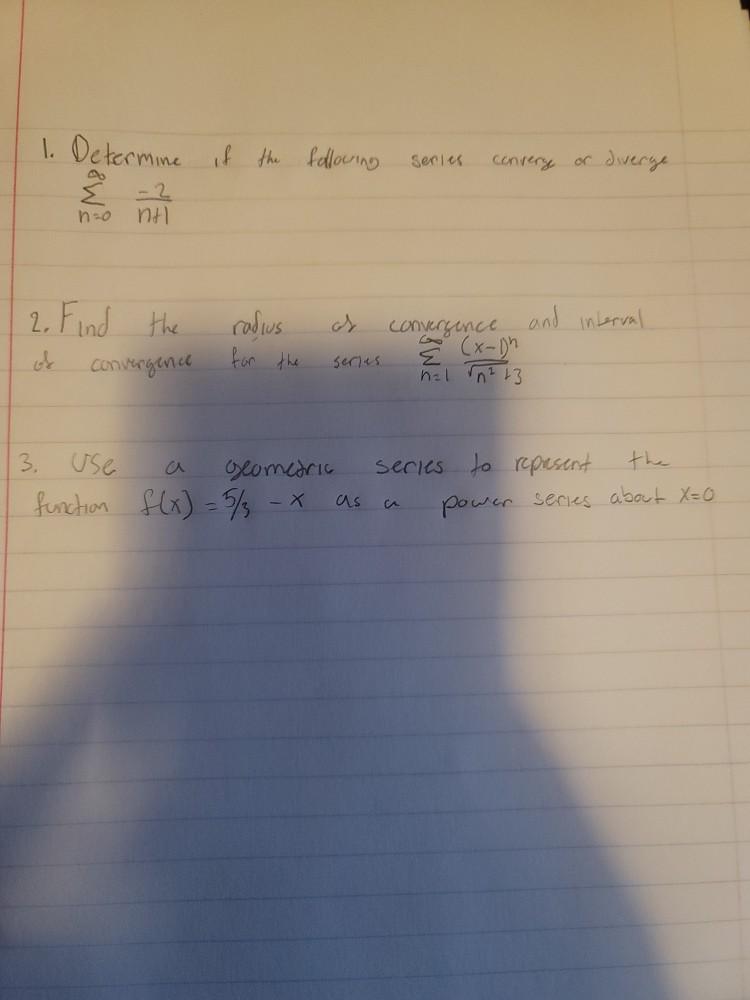 1. Determine if the following series converge or diverge
∞
Σ -2/n+1
n=0
2. Find the radius of convergence and interval
of convergence for the series ∞Σn=1 (x-1)ⁿ/√n²+3
3. Use a geometric series to represent the
function f(x) = 5/3 - x as a power series about x=0